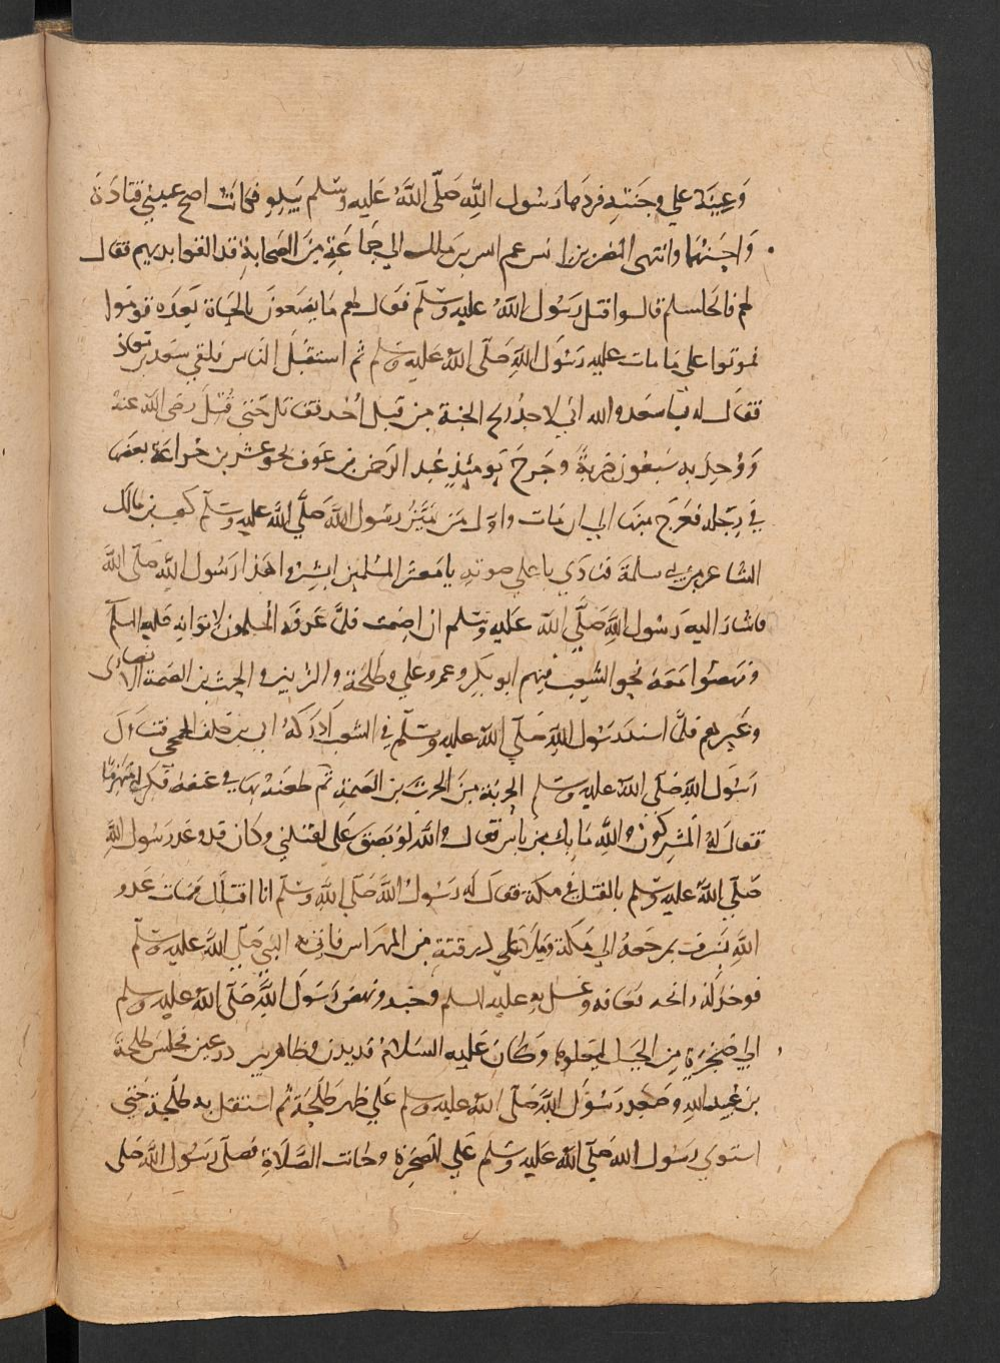 وَعِينَه علي وجنته فردها رسُول اللّه صَلّى اللّهُ عَليه وسَّلم بيده فكانت اصح عيني قتادَة
وَاحسَنهما وانتهى النضر بن انس عم انس بن مالك الي جماعَةٍ مِنَ الصَحابةِ قد القوا بديهم فقال
لهم ما لجاسلم قالوا قتل رَسُول اللّهُ عليه وسّلم فقال لهم مَا يصَنعونَ بالحَياة بَعدَه قومُوا
فموتوا على مَا مات عليه رَسُول اللّه صَلّى اللّهُ عَليه وسَلم ثم استقبَل النَاس فلقي سَعد بن معَاذ
فقال له يَا سعد والله اني لاجدُ ريح الجنة من قبل اُحُد فقاتل حَتي قُتلَ رضى اللّه عنهُ
وَوُجدَ به سَبعُون ضربةً وجَرحَ يَومئِذٍ عَبد الرَحمن بن عَوف نحو عشرين جراحَة بعضها
في رِجله فعَرج منها الي ان مَات واول من مَيَّزَ رسُول اللَّه صَلَّى اللَّه عليه وسَلّم كعب بن مَالك
الشاعر من بني سلمة فنادَي باعلي صَوتهِ يا مَعشر المُسلمين ابشِروا هَذا رَسُول اللّهِ صَلّى اللَّه
فاشار اليه رَسُول اللّه صَلَّي اللّه عَليه وسَّلم ان اصمت فلمَّا عَرفَه المُسلمون لاتوا اليه عَليه السلام
ونهضوا مَعَهُ نحو الشعب فيهم ابو بكر وعمر وعلي وطلحَة والزبير والحرث بن الصمة الانصاري
وغيرهم فلمَّا اسند رَسُول اللّهِ صَلَّي اللّه عليه وسّلم في الشعب ادرَكهُ ابي بن خلف الجمحي فتناول
رَسُول اللّهِ صَلّى اللّهُ عليه وسَلم الحربة مِنَ الحرث بن الصمةِ ثم طعنهُ بها في عنقه فكر ابي منهزمًا
فقال لهُ المُشركون واللّهِ مَا بك من باس فقال واللّهِ لو بَصق عَلي لقتلني وكان قد وعَد رسُول اللَّه
صَلّي اللّهُ عليه وسّلم بالقتل في مكة فقال له رَسُولُ اللّه صَلّي اللّهِ وسَلّم انا اقتلك فمات عَدو
اللّهِ بسَرف مرجعهُ الي مَكة ومَلا عَلي درقته من المهراس فاتي به النبي صَلّي اللّهُ عليه وسَلّم
فوجد له رائحه فعَافه وغسل به عليه السلم وجهه ونهض رَسُول اللّهِ صَلّى اللّهُ عليه وسَلم
الي صَخرَةٍ مِن الجَبَل ليَعلوها وكان عَليه السَلامُ قد بدن وظاهر بين درعين فجلسَ طلحَة
بن عُبيد اللّهِ وصَعِد رَسُول اللَّه صَلّى اللّهُ عليه وسلم عَلي ظهر طَلحَة ثم استقل به طَلحَة حَتي
استوي رسُول الله صَلّي اللّه عَليه وسَلم علي الصَخرةِ وحَانت الصَّلاةِ فصَلّى رسُول اللّه صَلى